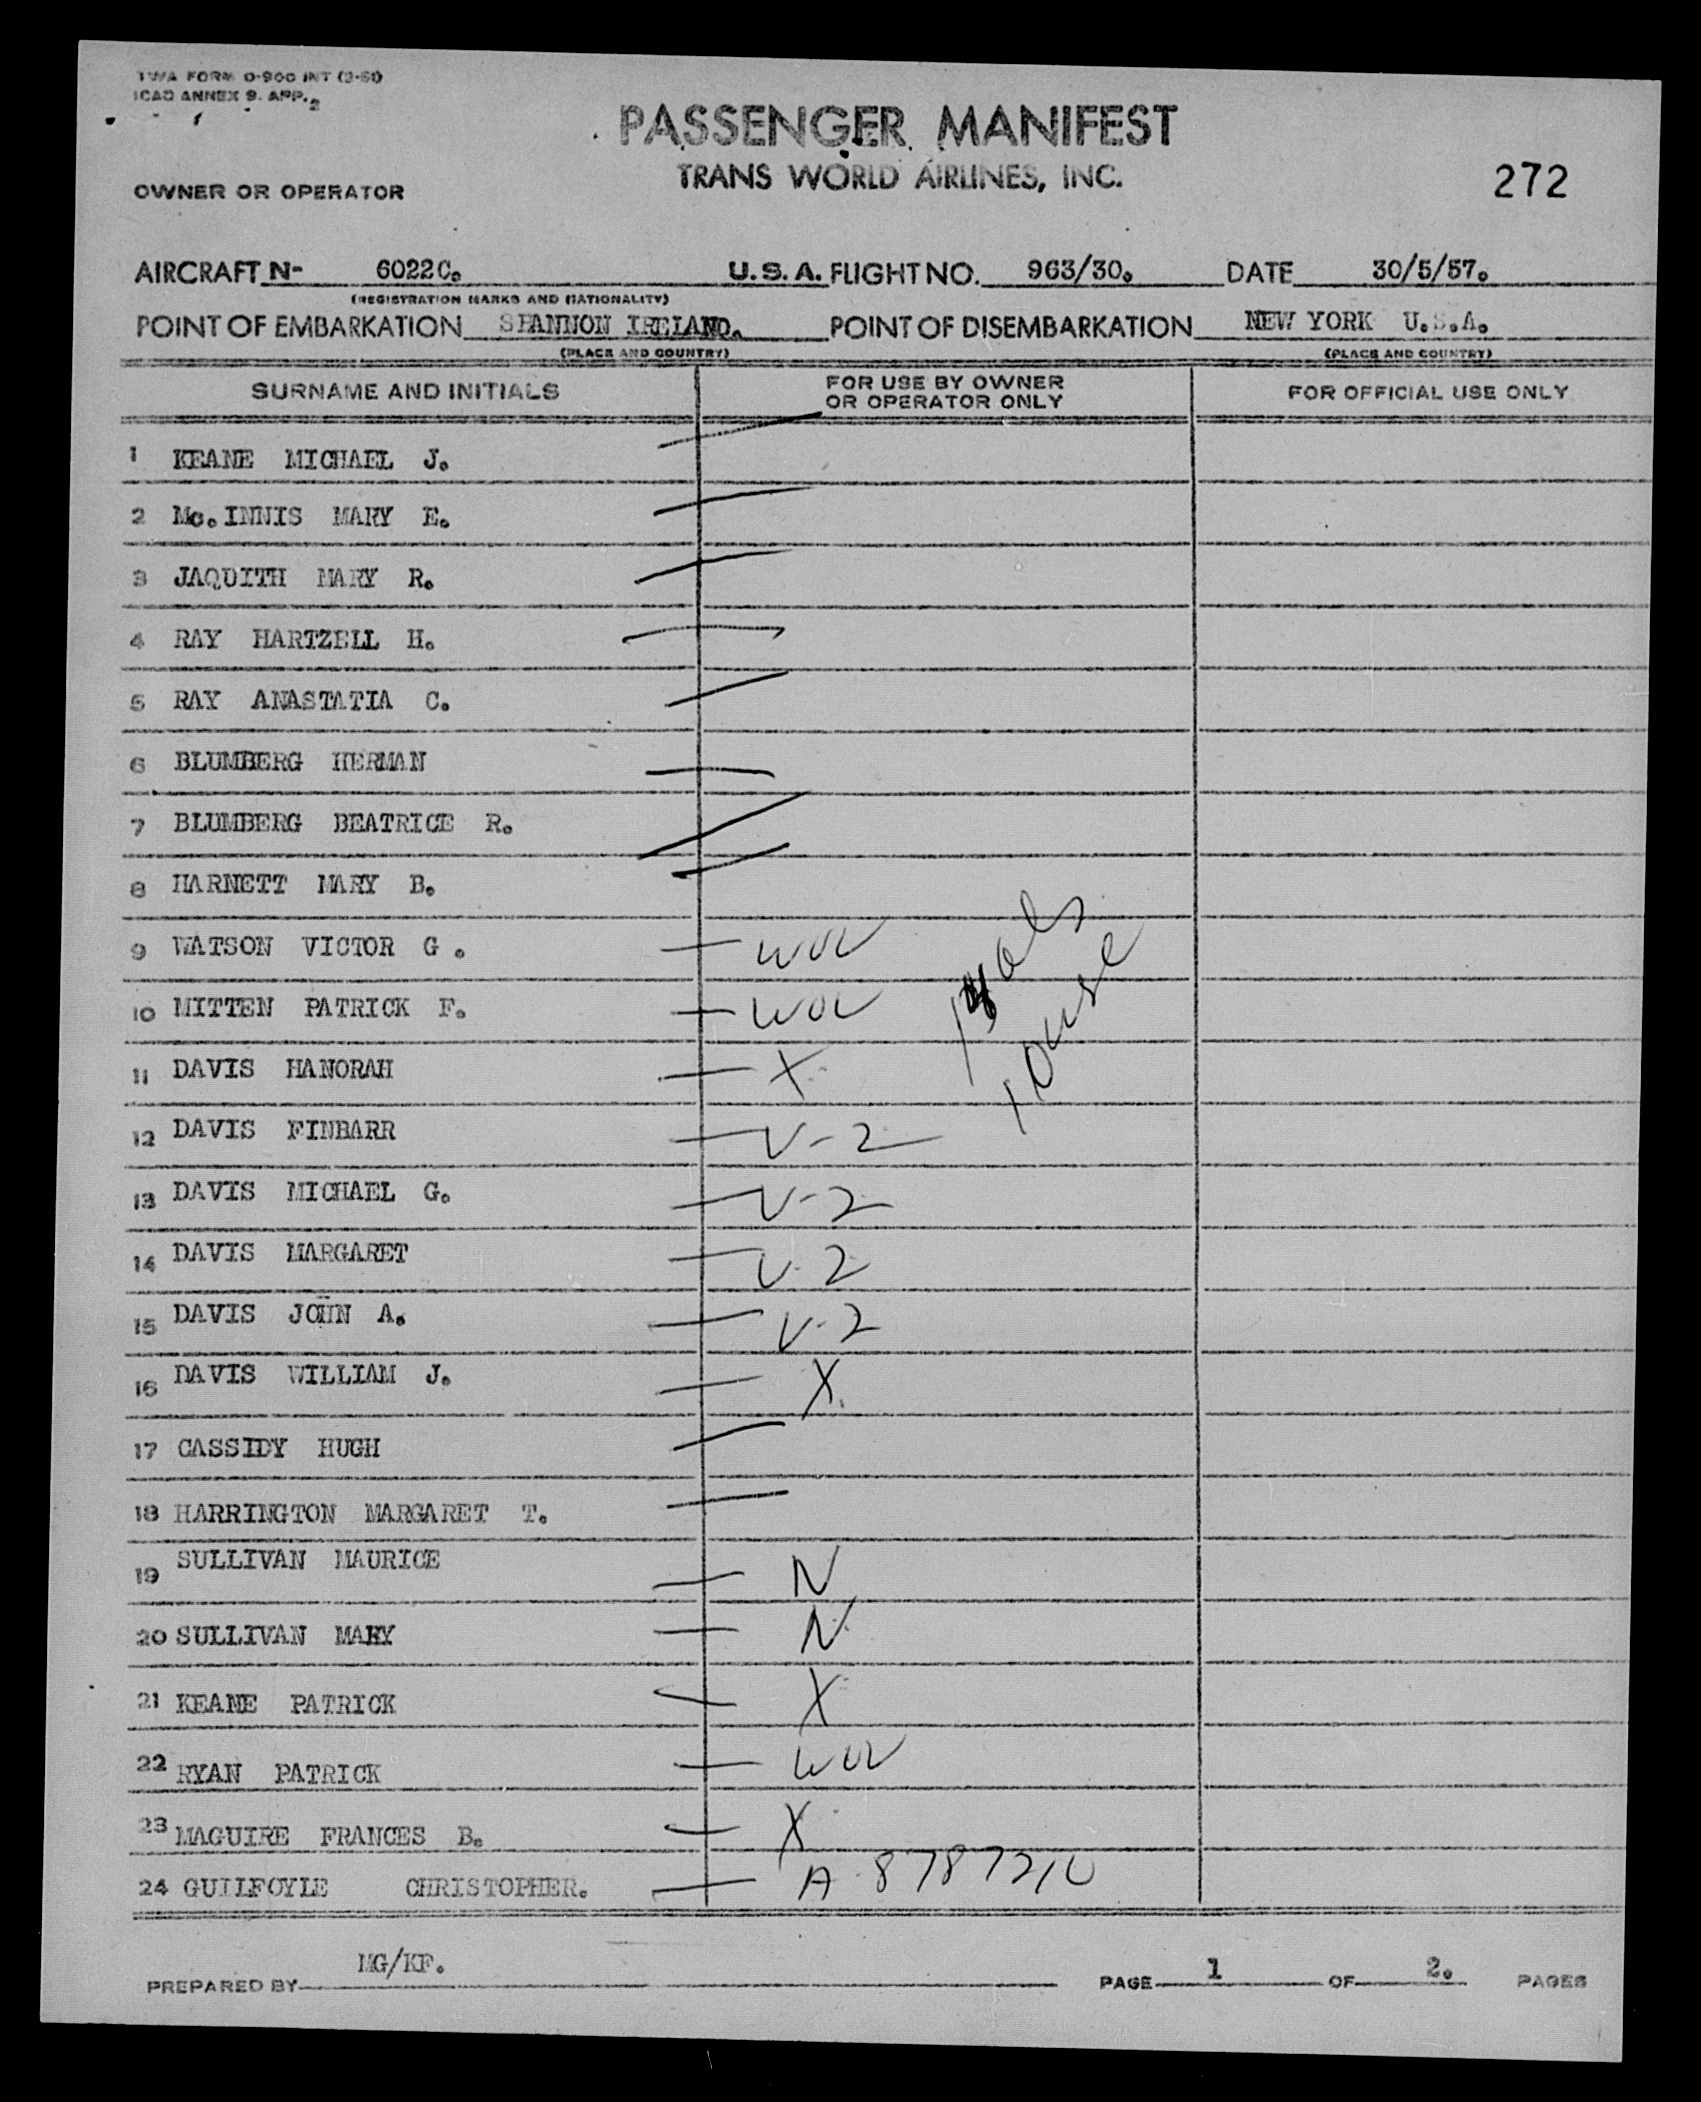 TWA FORM O-900 INT (3-51)
ICAO ANNEX 9. APP. 2
PASSENGER MANIFEST
TRANS WORLD AIRLINES, INC.
272
OWNER OR OPERATOR
AIRCRAFT N- 6022C. U.S.A. FLIGHT NO. 963/30. DATE 30/5/57.
(REGISTRATION MARKS AND NATIONALITY)
POINT OF EMBARKATION SHANNON IRELAND. POINT OF DISEMBARKATION NEW YORK U.S.A.
(PLACE AND COUNTRY) (PLACE AND COUNTRY)
SURNAME AND INITIALS FOR USE BY OWNER OR OPERATOR ONLY FOR OFFICIAL USE ONLY
1 KEANE MICHAEL J.
2 Mc.INNIS MARY E.
3 JAQUITH MARY R.
4 RAY HARTZELL H.
5 RAY ANASTATIA C.
6 BLUMBERG HERMAN
7 BLUMBERG BEATRICE R.
8 HARNETT MARY B.
9 WATSON VICTOR G.
10 MITTEN PATRICK F.
11 DAVIS HANORAH X
12 DAVIS FINBARR V-2
13 DAVIS MICHAEL G. V-2
14 DAVIS MARGARET V-2
15 DAVIS JOHN A. V-2
16 DAVIS WILLIAM J. X
17 CASSIDY HUGH
18 HARRINGTON MARGARET T.
19 SULLIVAN MAURICE N
20 SULLIVAN MARY N
21 KEANE PATRICK X
22 RYAN PATRICK
23 MAGUIRE FRANCES B. X
24 GUILFOYLE CHRISTOPHER. A 8787210
PREPARED BY MG/KF. PAGE 1 OF 2. PAGES